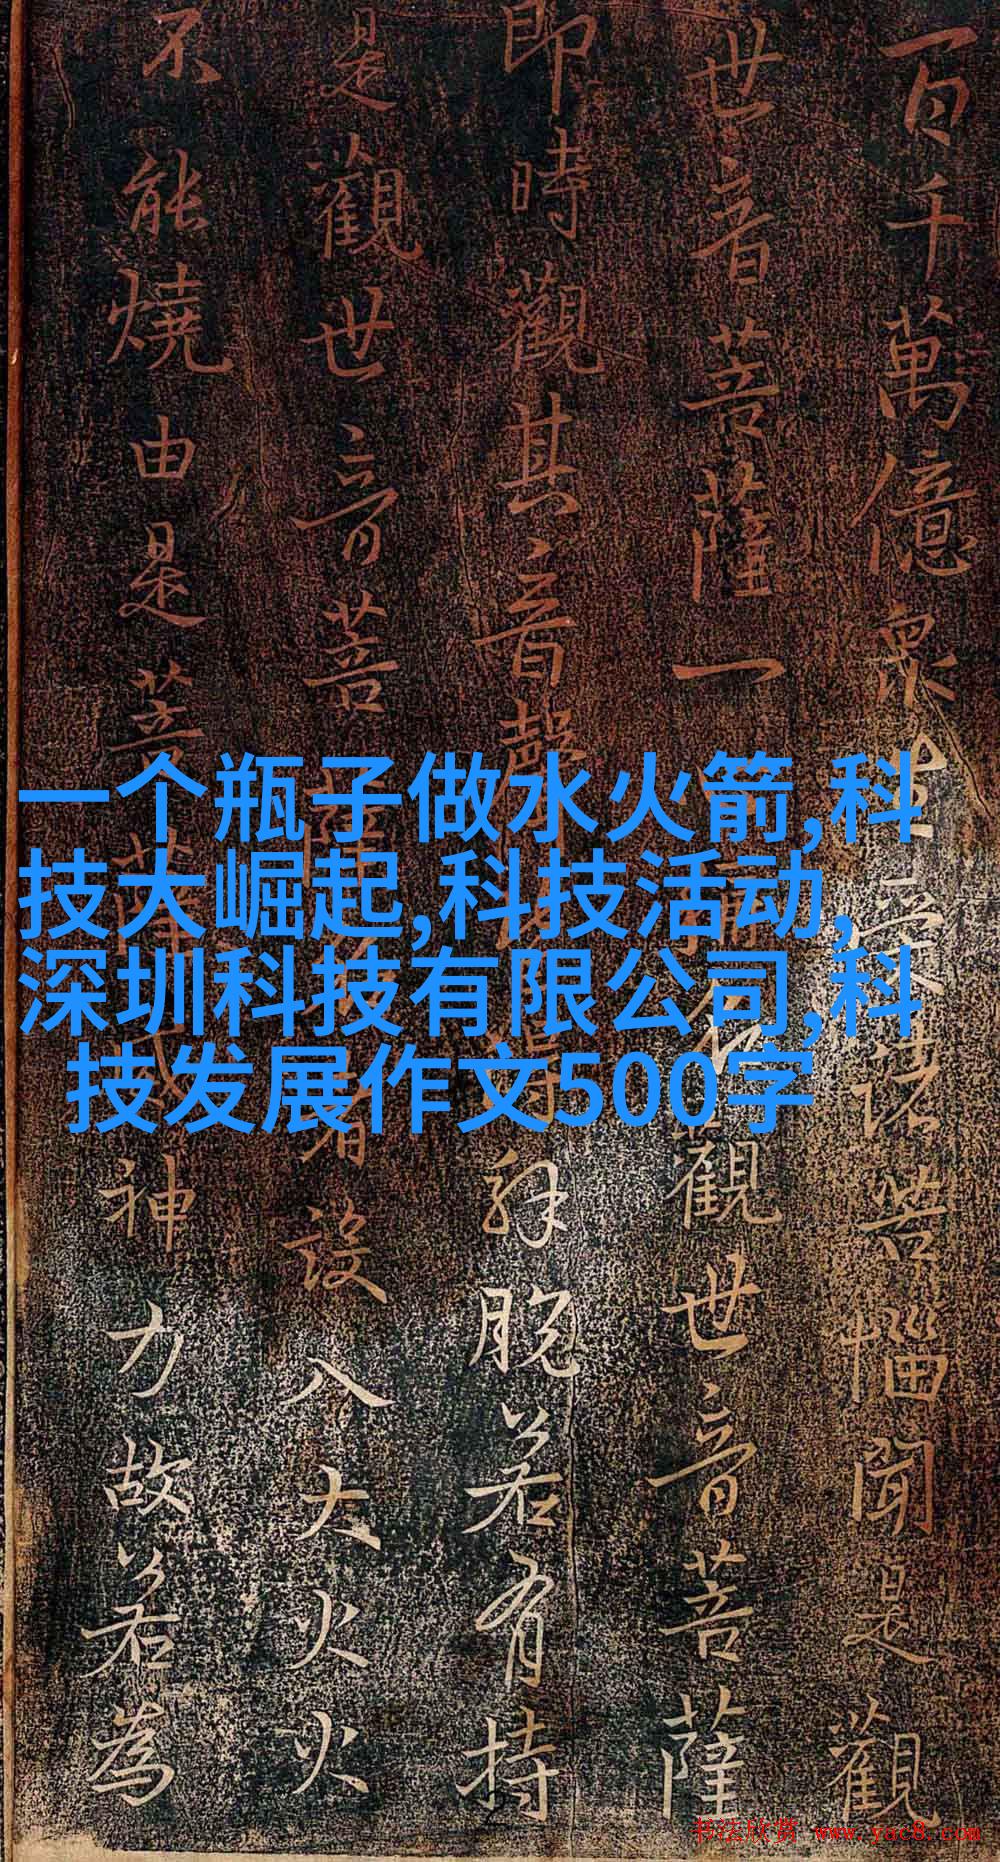 百千萬億眾生受諸苦惱聞是觀
世音菩薩一心稱名觀世音菩薩
即時觀其音聲皆得解脫若有持
是觀世音菩薩名者設入大火火
不能燒由是菩薩威神力故若為
一个瓶子做水火箭,科
技大崛起,科技活动,
深圳科技有限公司,科
技发展作文500字
书法欣赏 www.yac8.com